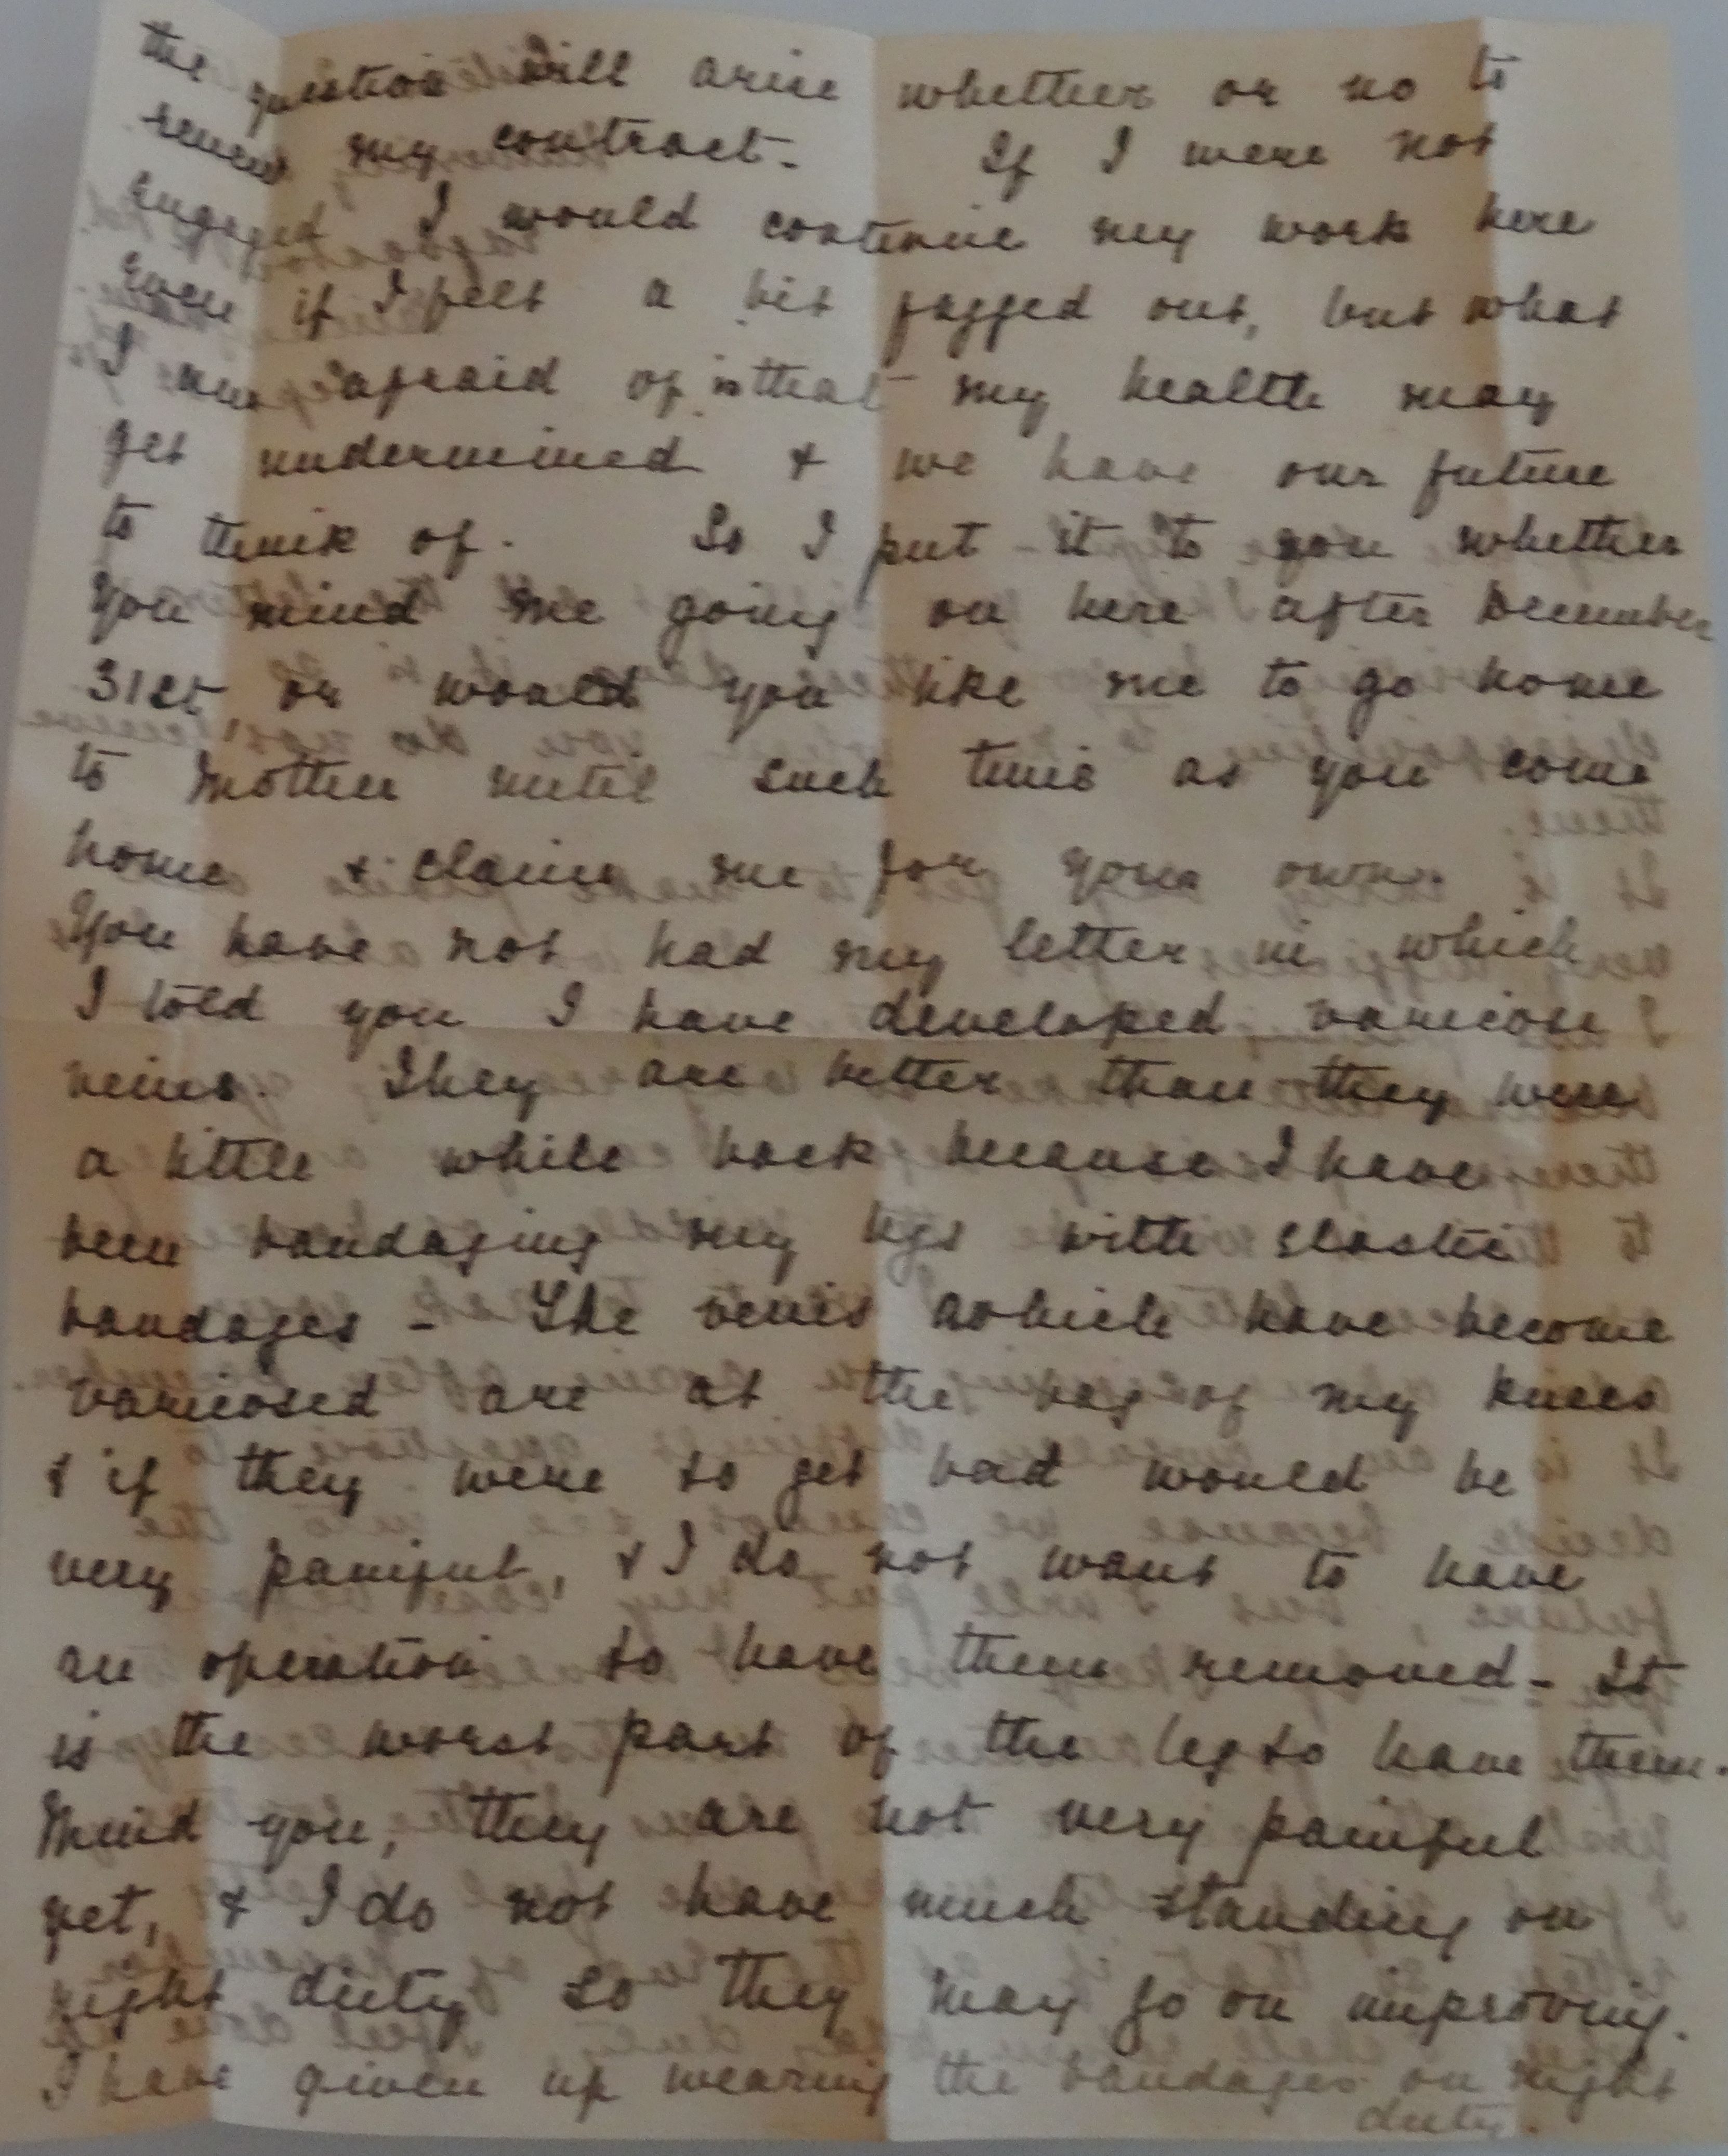 the question will arise whether or no to
renew my contract. If I were not
engaged I would continue my work here
even if I felt a bit fagged out, but what
I am afraid of is that my health may
get undermined & we have our future
to think of. So I put it to you whether
you mind me going on here after December
31st, or would you like me to go home
to Mother until such time as you come
home & claim me for your own.
You have not had my letter in which
I told you I have developed varicose
veins. They are better than they were
a little while back because I have
been bandaging my legs with elastic
bandages - The veins which have become
varicosed are at the bag of my knees
& if they were to get bad would be
very painful, & I do not want to have
an operation to have them removed - It
is the worst part of the leg to have them.
Mind you, they are not very painful
yet, & I do not have much standing on
night duty so they may go on improving.
I have given up wearing the bandages on night
duty.